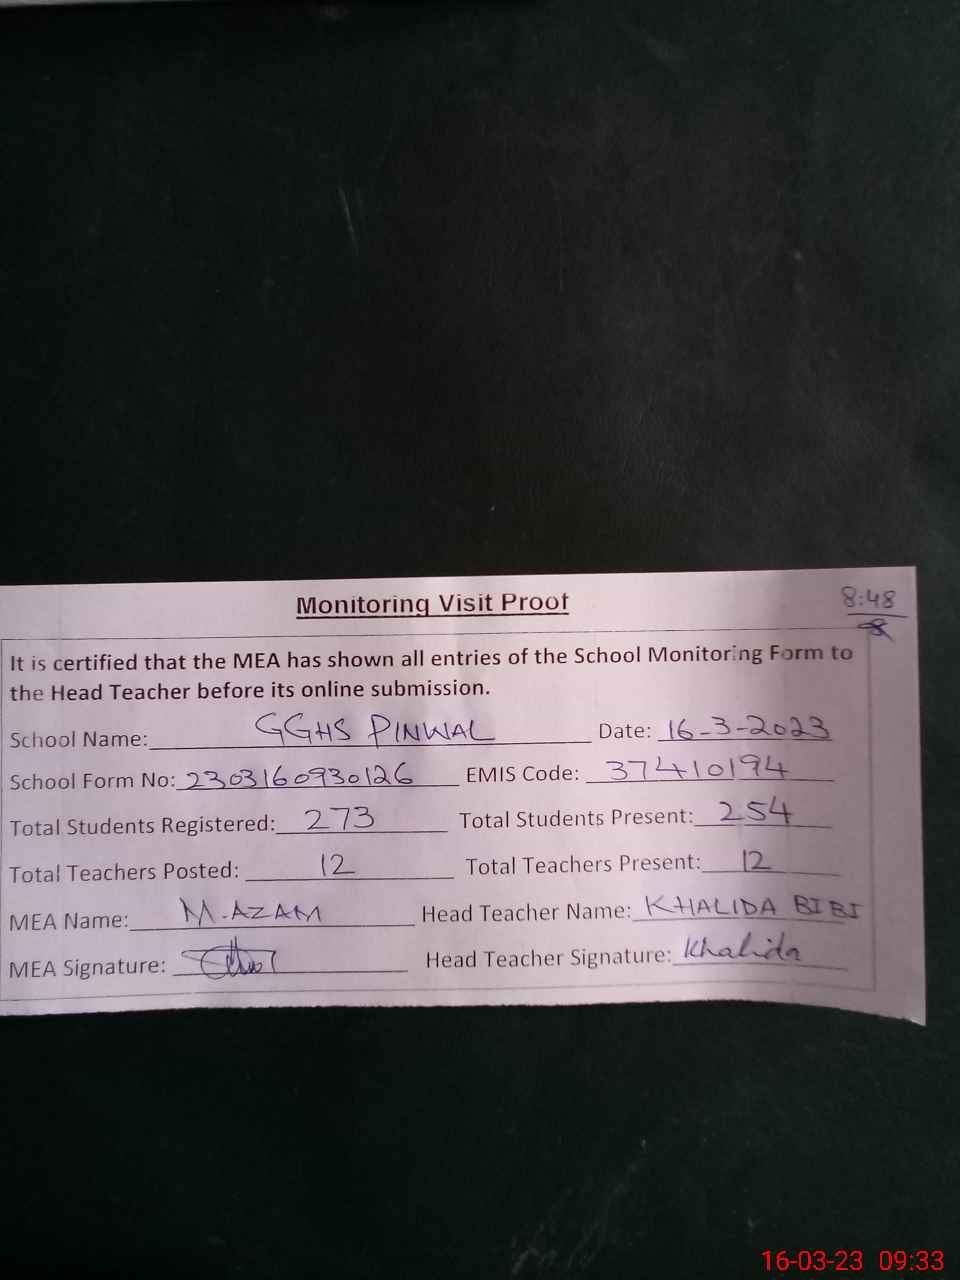 Monitoring Visit Proof
8:48
It is certified that the MEA has shown all entries of the School Monitoring Form to
the Head Teacher before its online submission.
School Name: GGHS PINWAL Date: 16-3-2023
School Form No: 2303160930126 EMIS Code: 37410194
Total Students Registered: 273 Total Students Present: 254
Total Teachers Posted: 12 Total Teachers Present: 12
MEA Name: M.AZAM Head Teacher Name: KHALIDA BIBI
MEA Signature: Head Teacher Signature: Khalida
16-03-23 09:33